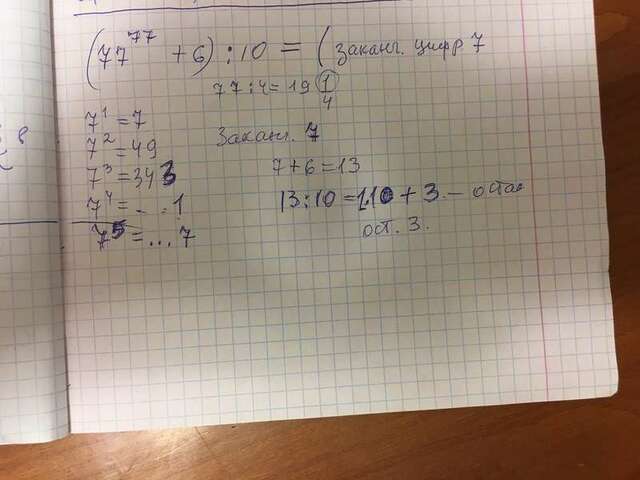 (77⁷⁷ + 6) : 10 = (заканч. цифр 7
77 : 4 = 19 1/4
7¹ = 7
7² = 49
7³ = 343
7⁴ = ...1
7⁵ = ...7
Заканч. 7
7 + 6 = 13
13 : 10 = 1·10 + 3 –
ост. 3.